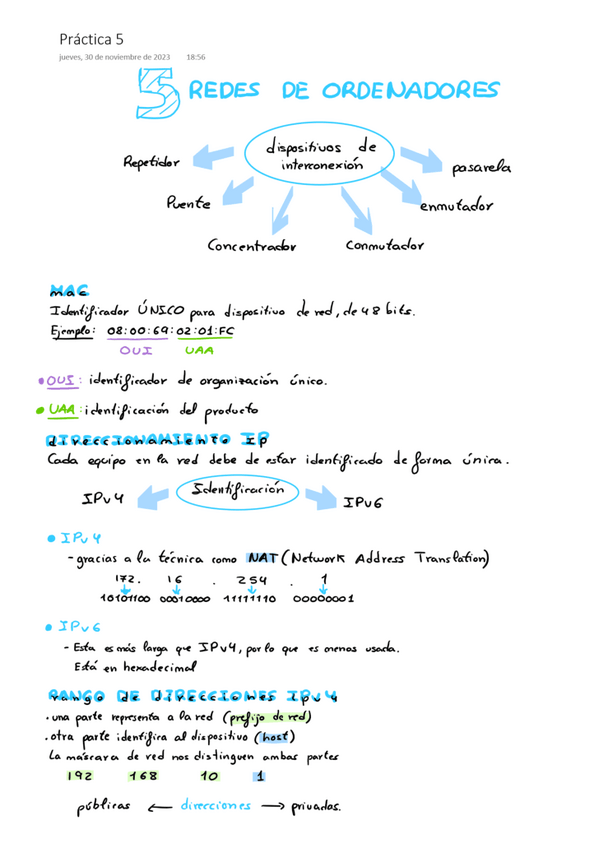 Práctica 5
jueves, 30 de noviembre de 2023 18:56
5 REDES DE ORDENADORES
dispositivos de
interconexión
Repetidor
pasarela
Puente
enmutador
Concentrador
Conmutador
MAC
Identificador ÚNICO para dispositivo de red, de 48 bits.
Ejemplo: 08:00:69:02:01:FC
OUI UAA
• OUI: identificador de organización único.
• UAA: identificación del producto
DIRECCIONAMIENTO IP
Cada equipo en la red debe de estar identificado de forma única.
Identificación
IPv4
IPv6
• IPv4
- gracias a la técnica como NAT (Network Address Translation)
172. 16 . 254 . 1
10101100 00010000 11111110 00000001
• IPv6
- Esta es más larga que IPv4, por lo que es menos usada.
Está en hexadecimal
RANGO DE DIRECCIONES IPv4
· una parte representa a la red (prefijo de red)
· otra parte identifira al dispositivo (host)
La máscara de red nos distinguen ambas partes
192 168 10 1
públicas ← direcciones → privados.